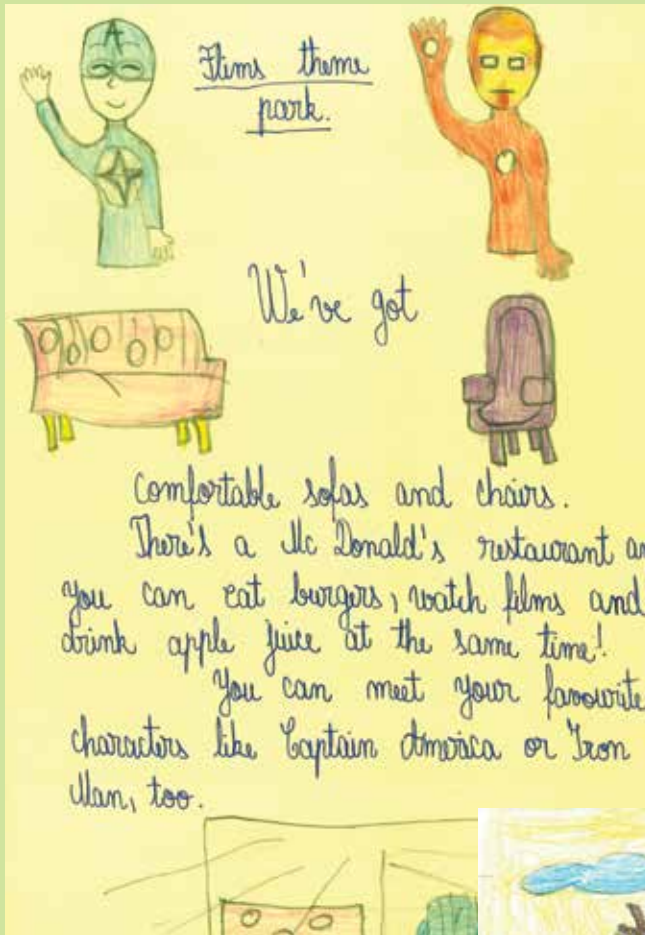 Flims theme
park.
We've got
comfortable sofas and chairs.
There's a Mc Donald's restaurant an
you can eat burgers, watch films and
drink apple juice at the same time!
You can meet your favourite
characters like Captain America or Iron
Man, too.